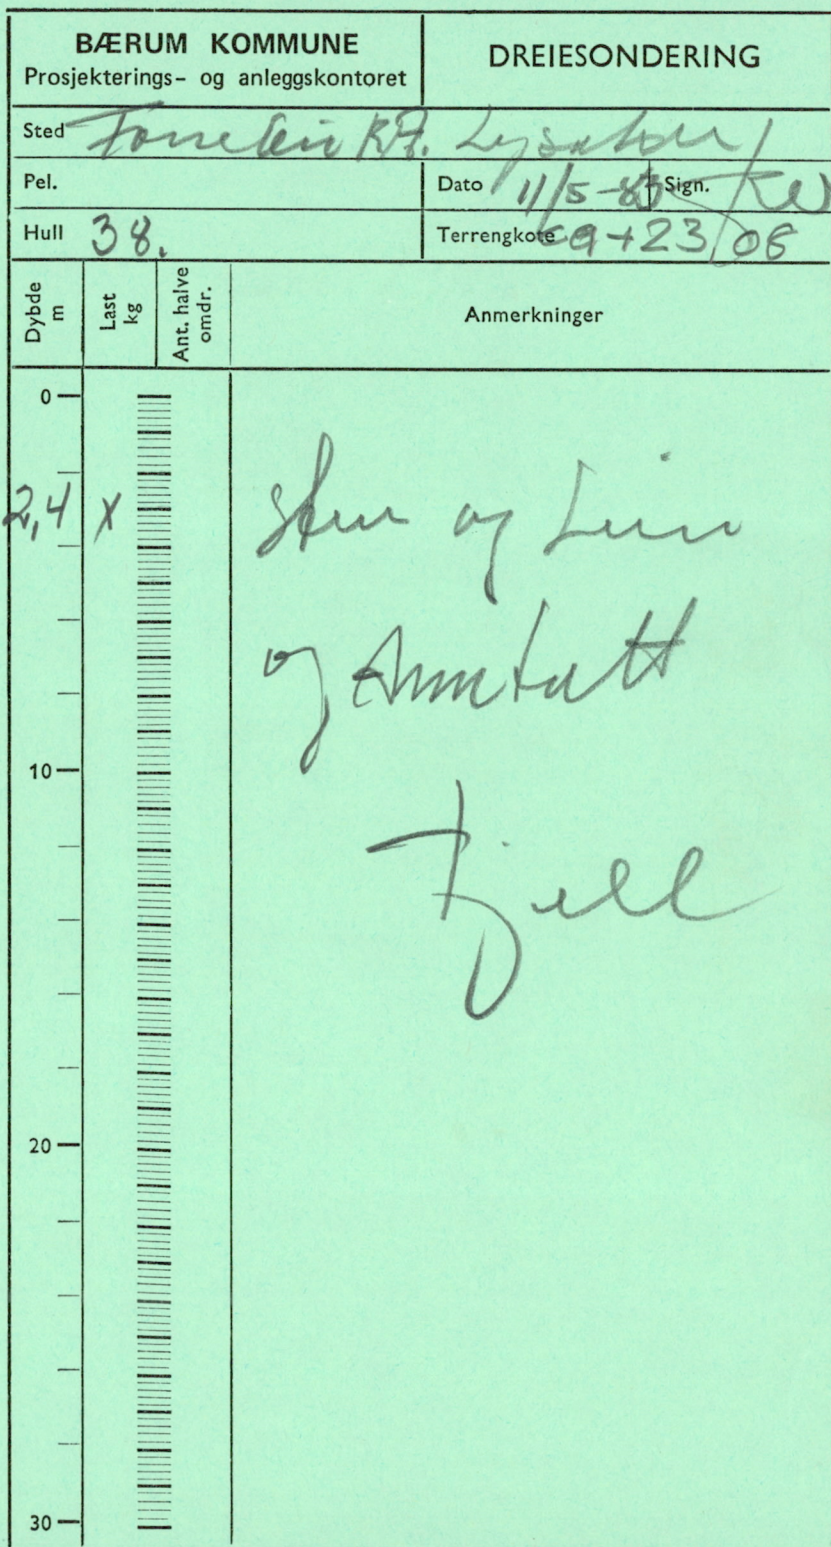 BÆRUM KOMMUNE
Prosjekterings- og anleggskontoret
DREIESONDERING
Sted
Pel.
Dato 11/5-83 Sign.
Hull 38.
Terrengkote ca +23,08
Dybde m
Last kg
Ant. halve omdr.
Anmerkninger
0
2,4 x
og
og Anntatt
Fjell
10
20
30